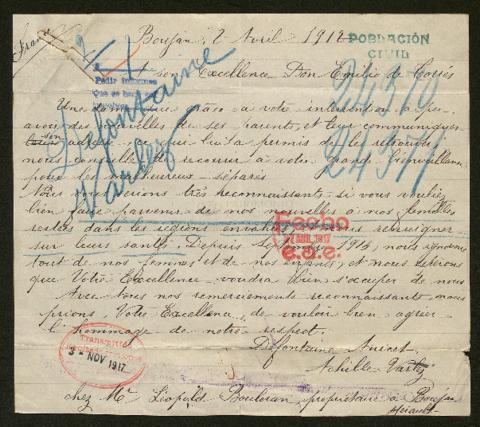 Boujan, 2 Avril 1917
POBLACIÓN
CIVIL
France
A son Excellence Don Emilio de
Pedir informes
Que se ha
24370
24371
Defontaine
Varlez
Une dame que grâce à votre intervention a pu
avoir des nouvelles de ses parents, et leur communiquer
son adresse, ce qui lui a permis de les retrouver,
nous conseille de recourir à votre grande bienveillance
pour les malheureux séparés
Nous vous serions très reconnaissants si vous vouliez
bien faire parvenir de nos nouvelles à nos familles
restées dans les régions envahies, et nous renseigner
sur leurs santé. Depuis Septembre 1914, nous ignorons
tout de nos femmes et de nos enfants, et nous
que Votre Excellence voudra bien s'occuper de nous
Avec tous nos remerciements reconnaissants, nous
prions, Votre Excellence, de vouloir bien agréer
l'hommage de notre respect.
Fecho
ABR. 1917
Defontaine Anicet
Achille Varlez
3 - NOV 1917
chez Mr Léopold Bouleran, propriétaire à Boujan
Hérault